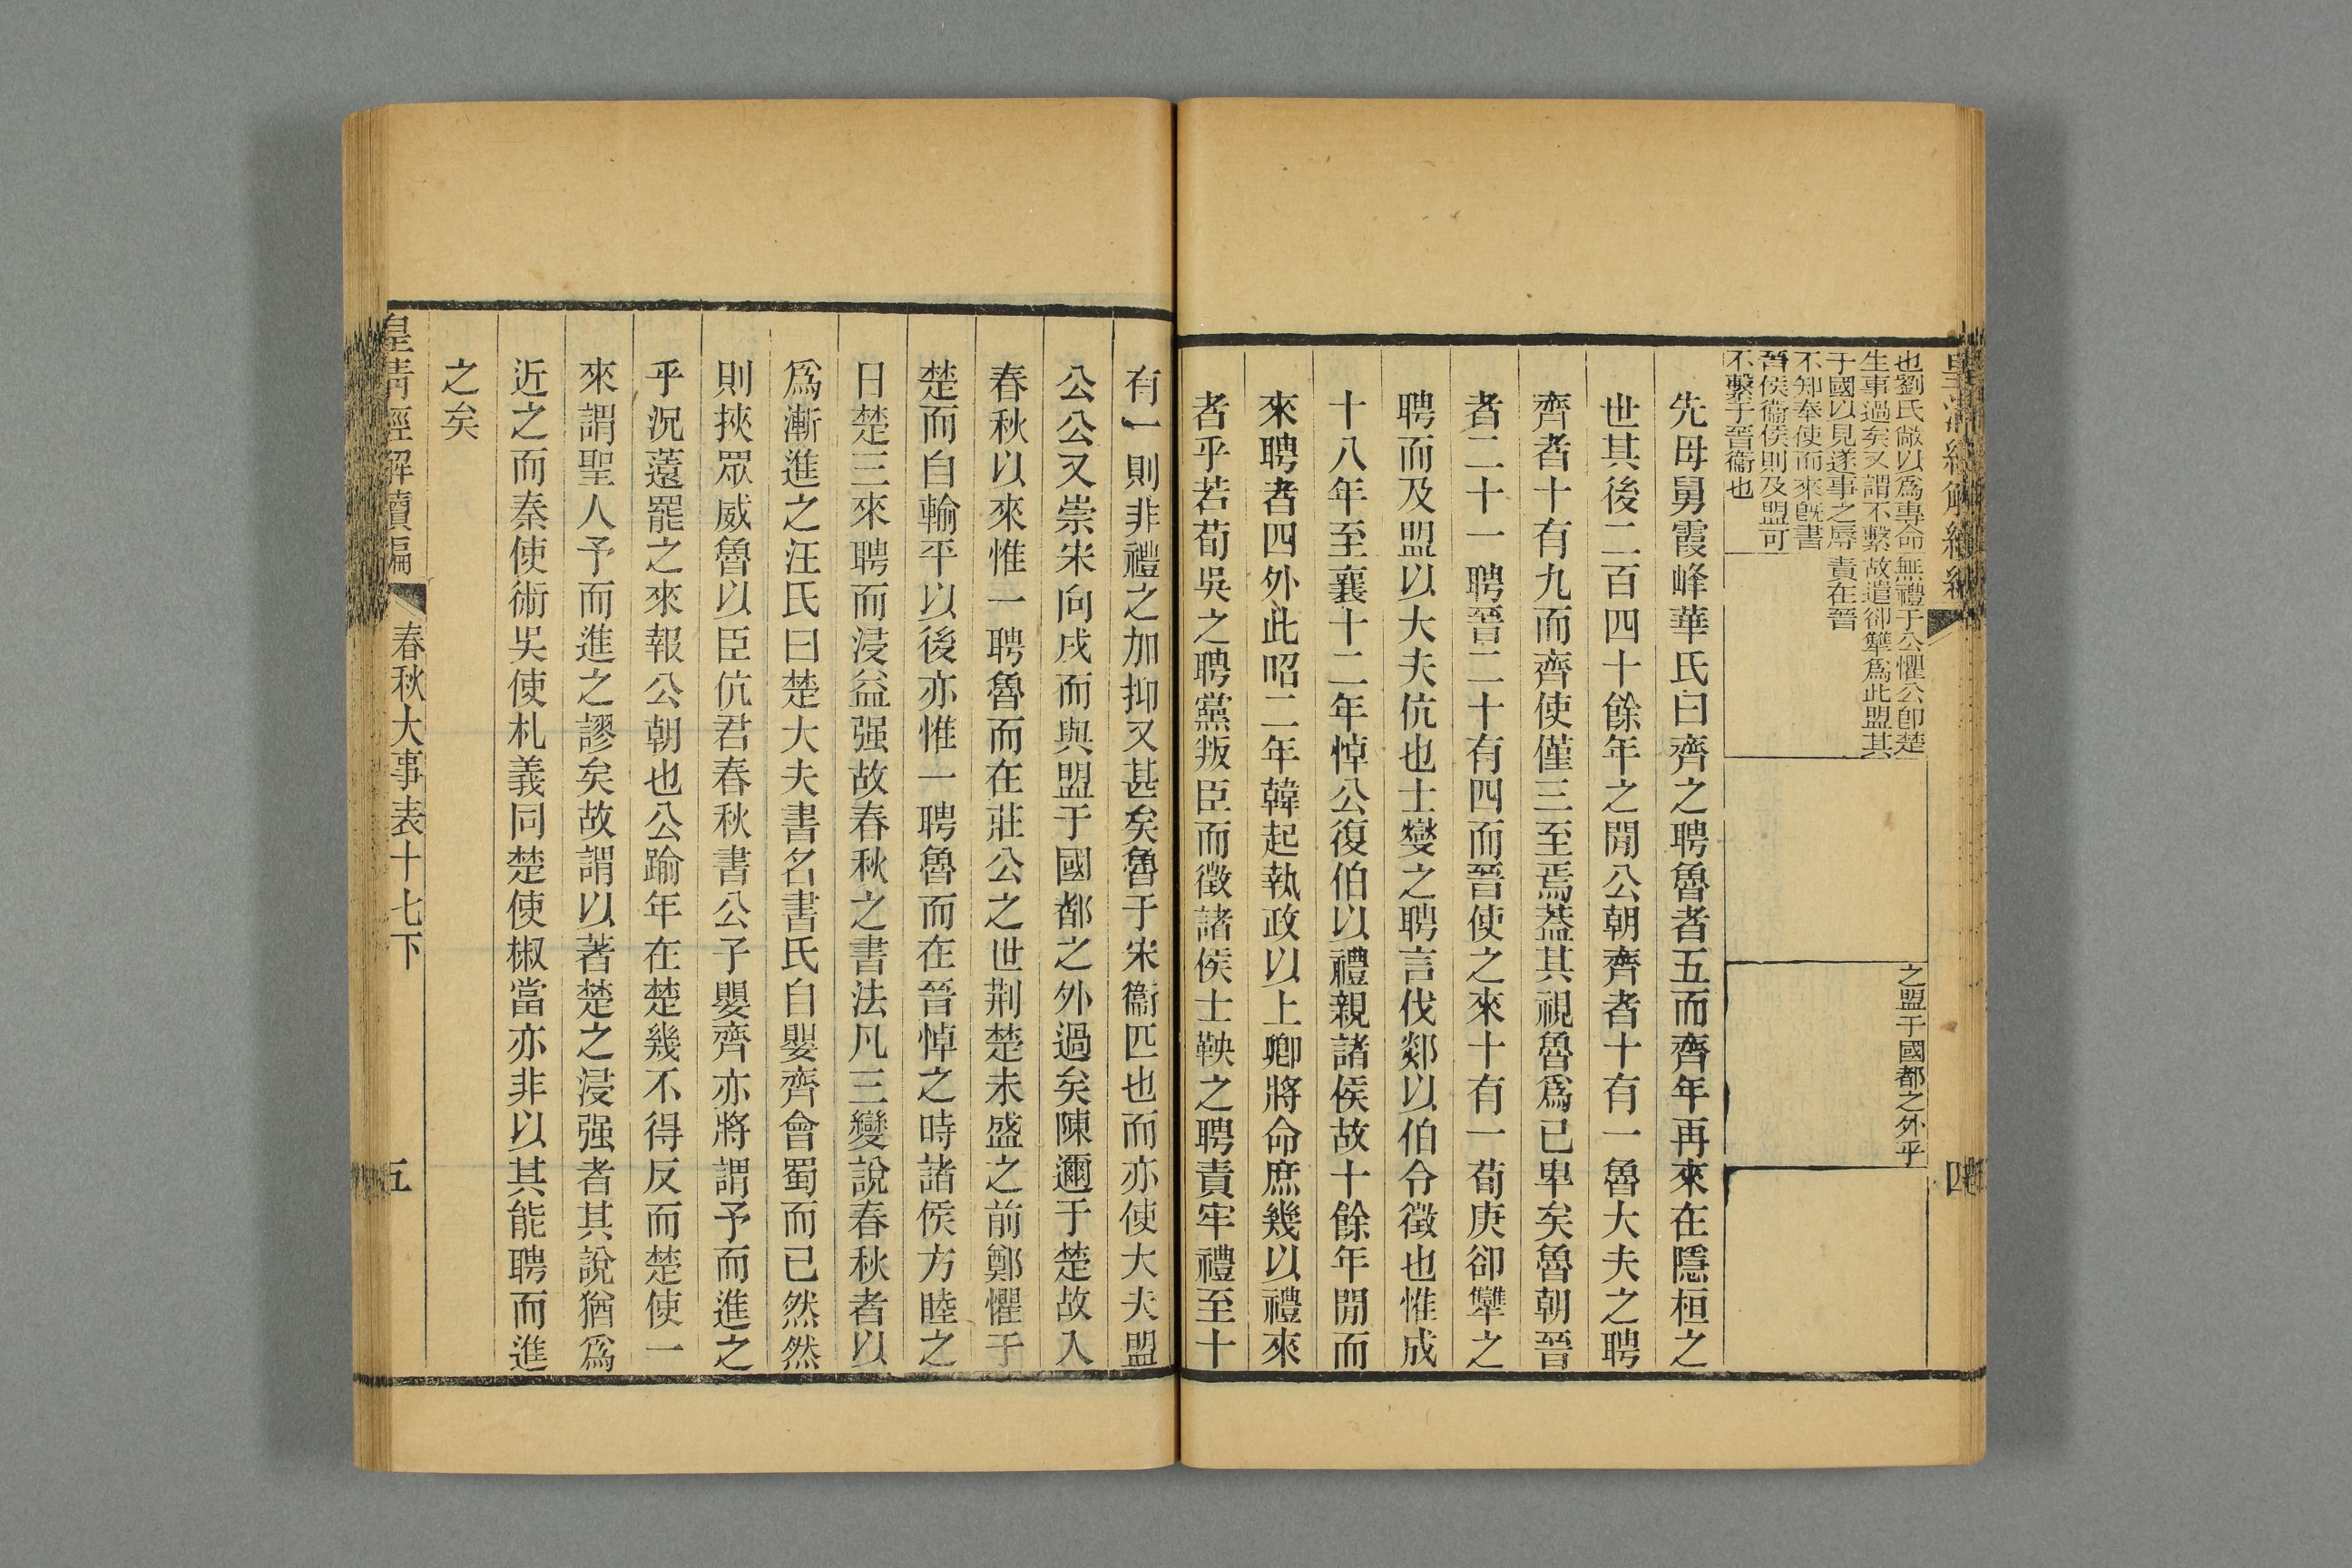 皇清經解續編
四
也劉氏敞以爲專命無禮于公懼公卽楚
生事過矣又謂不繫故遣卻犨爲此盟其
于國以見遂事之辱責在晉
不知奉使而來旣書
晉侯衞侯則及盟可
不繫于晉衞也
之盟于國都之外乎
先母舅霞峰華氏曰齊之聘魯者五而齊年再來在隱桓之
世其後二百四十餘年之閒公朝齊者十有一魯大夫之聘
齊者十有九而齊使僅三至焉葢其視魯爲已卑矣魯朝晉
者二十一聘晉二十有四而晉使之來十有一荀庚卻犨之
聘而及盟以大夫伉也士燮之聘言伐郯以伯令徵也惟成
十八年至襄十二年悼公復伯以禮親諸侯故十餘年閒而
來聘者四外此昭二年韓起執政以上卿將命庶幾以禮來
者乎若荀吳之聘黨叛臣而徵諸侯士鞅之聘責牢禮至十
有一則非禮之加抑又甚矣魯于宋衞匹也而亦使大夫盟
公公又崇宋向戌而與盟于國都之外過矣陳邇于楚故入
春秋以來惟一聘魯而在莊公之世荆楚未盛之前鄭懼于
楚而自輸平以後亦惟一聘魯而在晉悼之時諸侯方睦之
日楚三來聘而浸益强故春秋之書法凡三變說春秋者以
爲漸進之汪氏曰楚大夫書名書氏自嬰齊會蜀而已然然
則挾眾威魯以臣伉君春秋書公子嬰齊亦將謂予而進之
乎況薳罷之來報公朝也公踰年在楚幾不得反而楚使一
來謂聖人予而進之謬矣故謂以著楚之浸强者其說猶爲
近之而秦使術吳使札義同楚使椒當亦非以其能聘而進
之矣
皇清經解續編
春秋大事表十七下
五